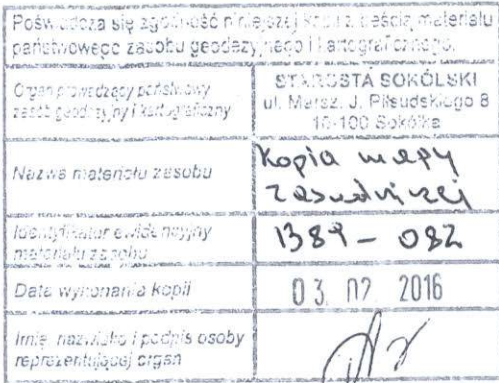 Poświadcza się zgodność niniejszej kopii z treścią materiału
państwowego zasobu geodezyjnego i kartograficznego.
Organ prowadzący państwowy
zasób geodezyjny i kartograficzny
STAROSTA SOKÓLSKI
ul. Marsz. J. Piłsudskiego 8
16-100 Sokółka
Nazwa materiału zasobu
Kopia mapy
zasadniczej
Identyfikator ewidencyjny
materiału zasobu
1389 - 082
Data wykonania kopii
03. 02. 2016
Imię, nazwisko i podpis osoby
reprezentującej organ